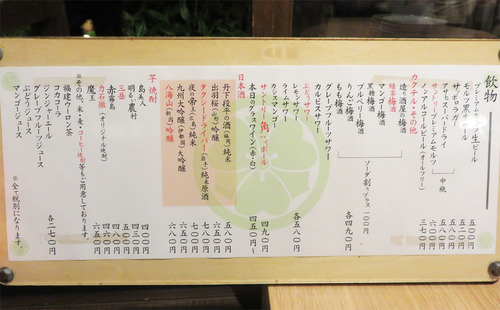 飲物
サッポロラガー
アサヒスーパードライ
中瓶
ノンアルコールビール（オールフリー）
三七〇
カクテル・その他
造り酒屋の梅酒
緑茶梅酒
マンゴー梅酒
黒糖梅酒
ブルベリー梅酒
りんご梅酒
もも梅酒
ソーダ割りプラス 一〇〇
各四五〇
グレープフルーツサワー
カルピスサワー
ぶどうサワー
ウーロンサワー
ライムサワー
カシスマンゴ
各五八〇
サントリー角ハイボール
四九〇
本日のグラスワイン（赤・白）
四五〇〜
日本酒
丹下段平の酒（福岡）純米
五八〇
出羽桜（山形）吟醸
六五〇
タクシードライバー（岩手）純米原酒
七八〇
夜の帝王（広島）純米
六五〇
九州大吟醸（伊都町）大吟醸
六八〇
八海山（新潟）吟醸
六八〇
芋焼酎
島美人
四〇〇
明るい農村
四三〇
三岳
四五〇
赤霧島
四六〇
力石徹（オリジナル焼酎）
五〇〇
魔王
六五〇
※その他、米・麦・コーヒー焼酎等もご用意しております。
福建ウーロン茶
コカコーラ
ジンジャーエール
グレープフルーツジュース
ぶどうジュース
マンゴージュース
各二七〇
※全て税別になります。